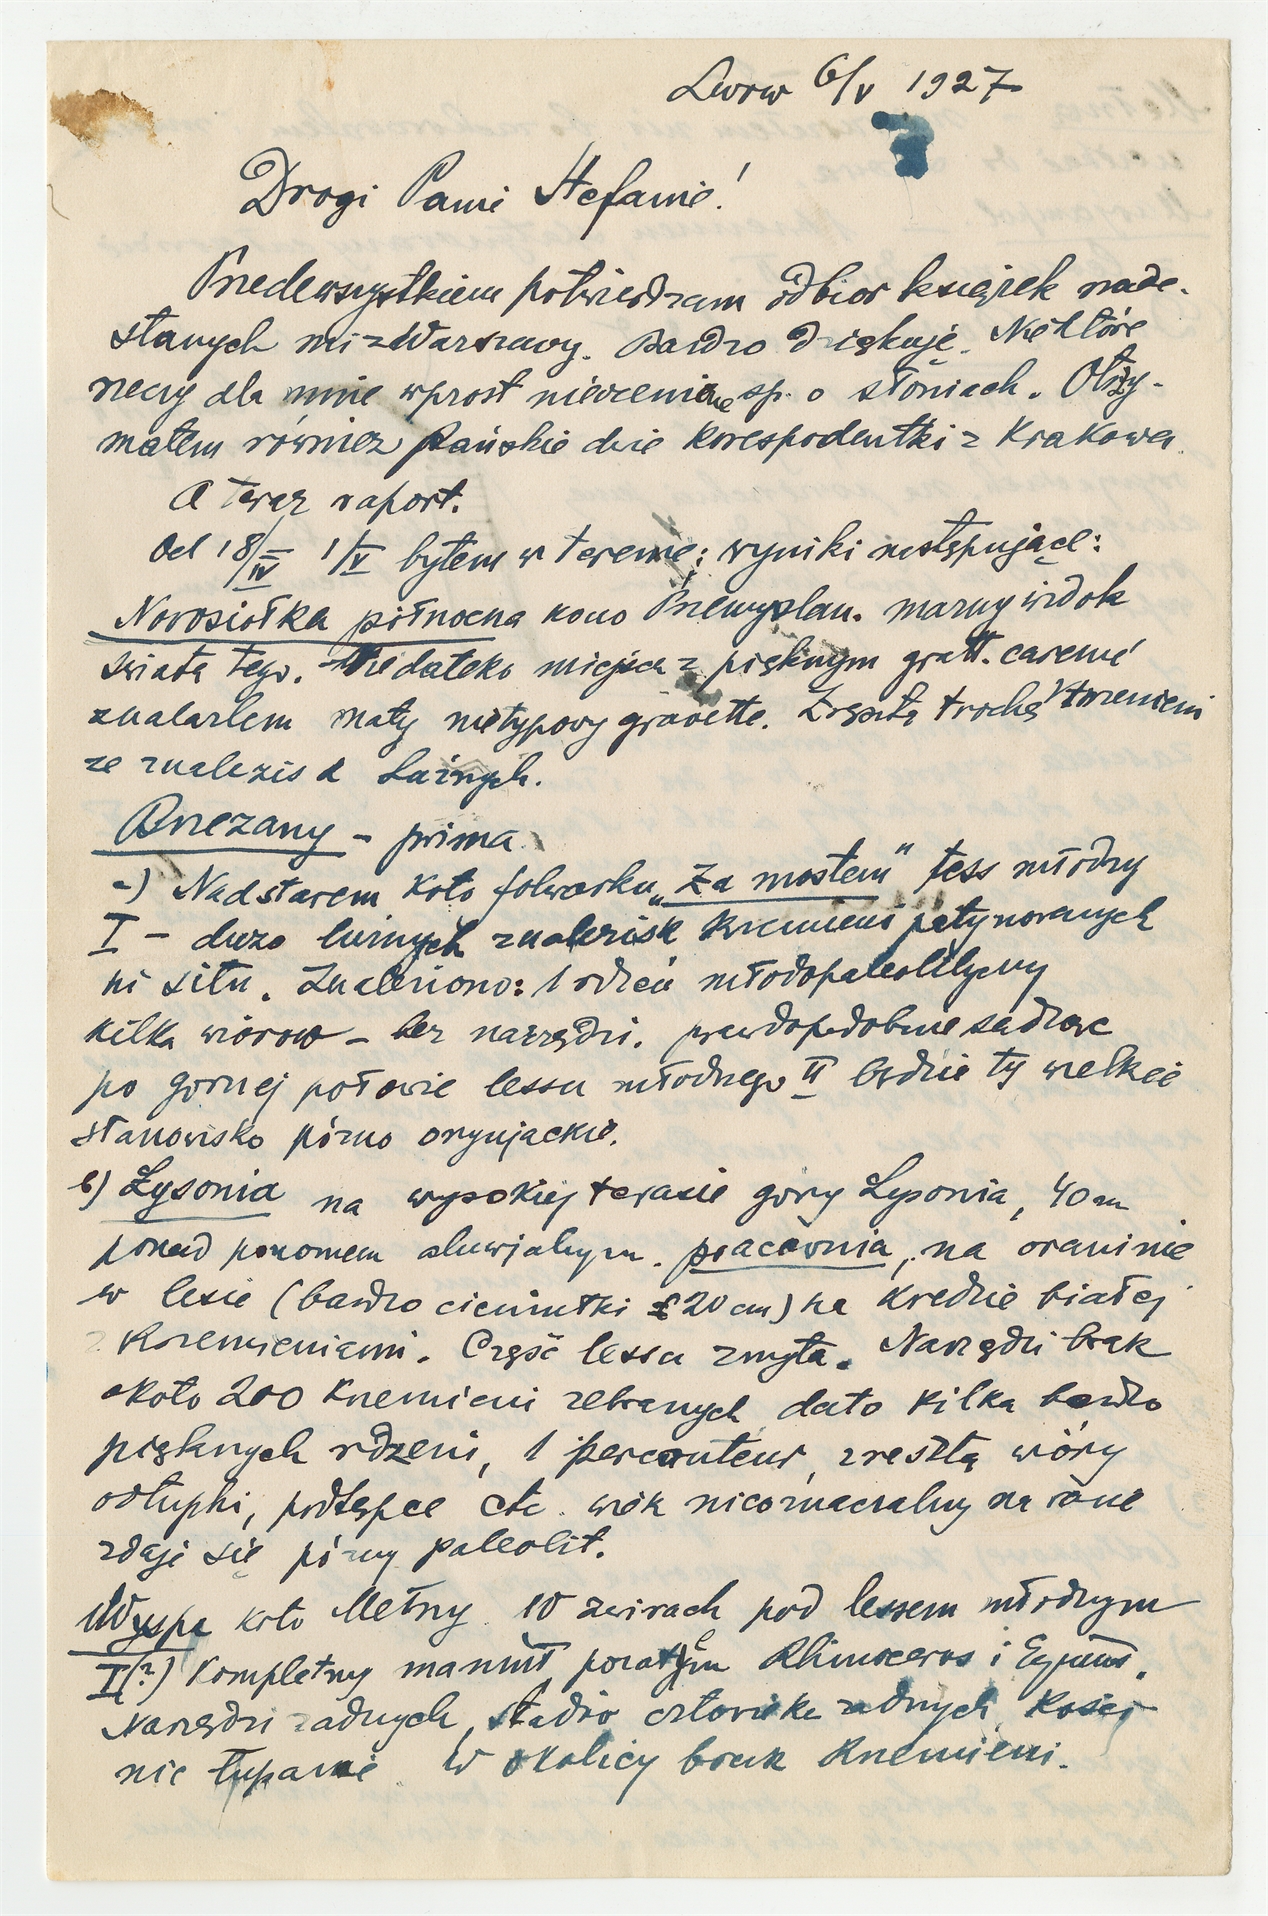 Lwów 6/V 1927.
Drogi Panie Stefanie!
Przedewszystkiem potwierdzam odbior książek nade-
słanych mi z Warszawy. Bardzo dziękuję. Niektóre
rzeczy dla mnie wprost niecenione sp. o słoniach. Otrzy-
małem również Pańskie dwie korespodentki z Krakowa.
A teraz raport.
Od 18/IV 1/V byłem w terenie; wyniki następujące:
Nowosiołka północna koło Przemyślan. marny widok
świata tego. Niedaleko miejsca z pięknym gratt. carené
znalazłem mały nietypowy gravette. Zresztą trochę krzemieni
ze znalezisk luźnych.
Brzezany – prima
a) Nadstawem koło folwarku „Za mostem" less młodzy
I – duzo luźnych znalezisk krzemieni patynowanych
ni situ. Znaleziono: 1 rdzeń młodopaleolityczny
kilka wiorow – bez narzędzi. prawdopodobnie sądząc
po gornej połowie lessu młodszego II będzie ty wielkie
stanowisko pózno orynjackie.
b) Łysonia na wysokiej terasie gory Lysonia, 40 m
ponad poziomem aluwjalnym. pracownia, na oraninie
w lesie (bardzo cieniutki ± 20 cm) na kredzie białej
z krzemieniami. Część lessu zmyta. Narzędzi brak
około 200 krzemieni zebranych dało kilka bardzo
pięknych rdzeni, 1 percouteur, zresztą wióry
odłupki, podtępce etc. wiek nieoznaczalny na razie
zdaje się pózny paleolit.
Wyspa koło Mełny. W zwirach pod lessem młodszym
I(?) kompletny mamut pozatym Rhinoceros i Equus.
Narzędzi zadnych, śladów człowieka zadnych. Kości
nie łupanie W okolicy brak krzemieni.